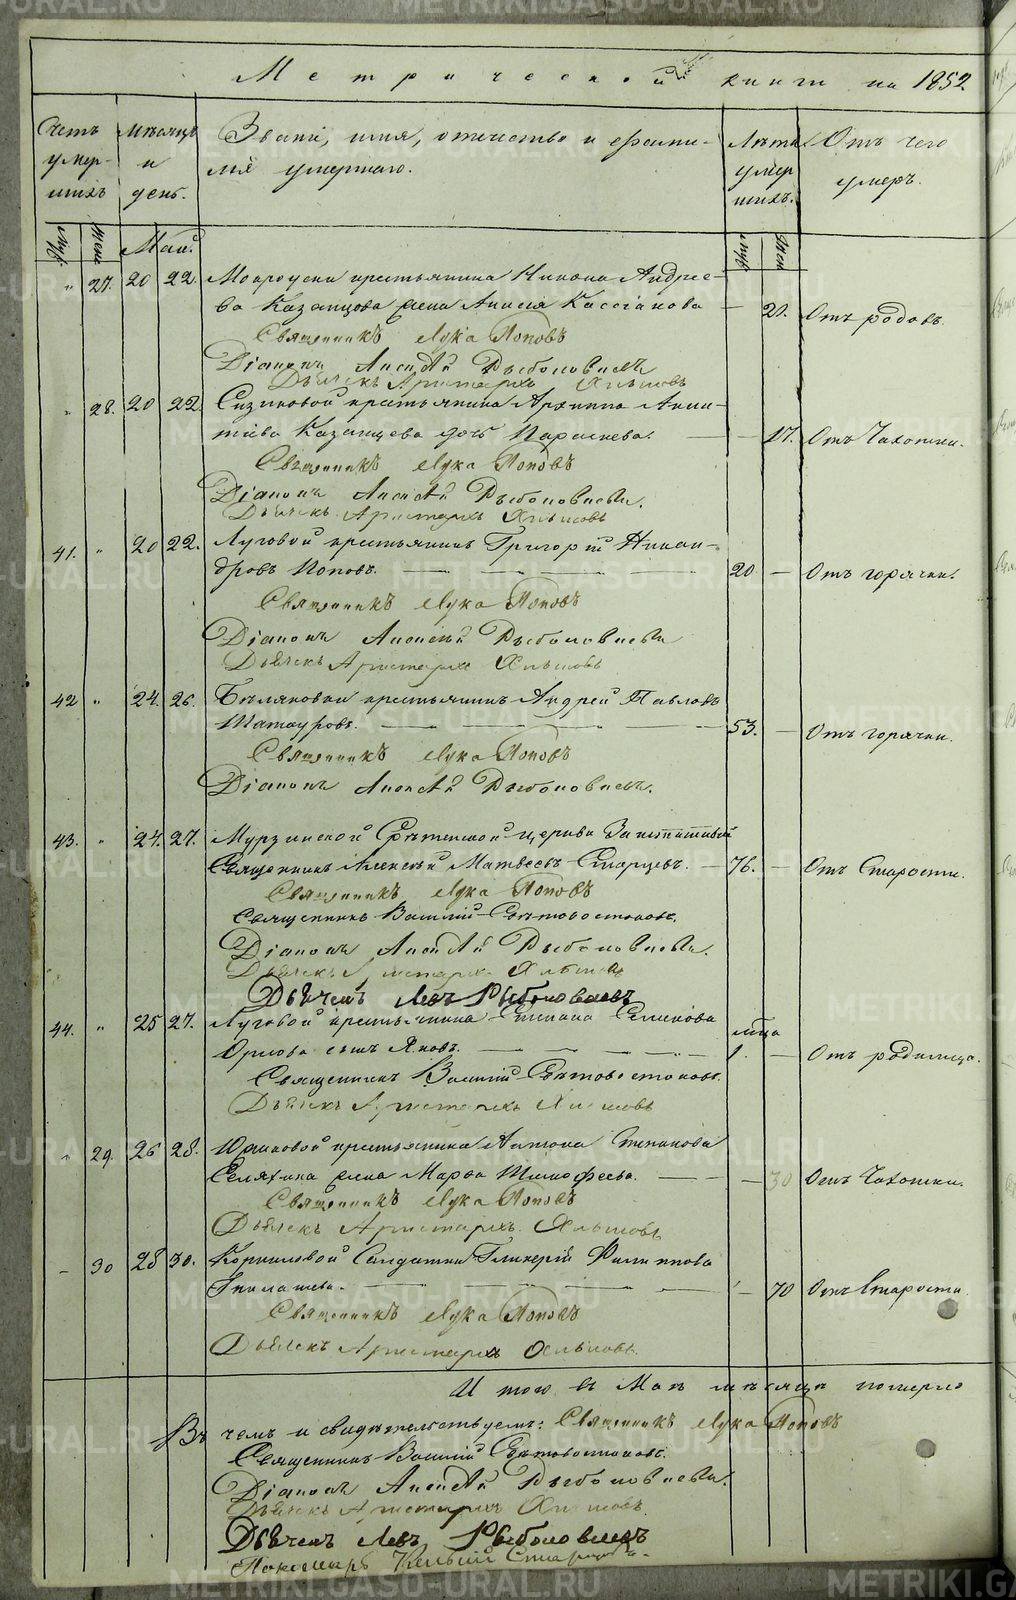 Метрической книги на 1852
Счетъ умершихъ
Мѣсяцъ и день.
Званіе, имя, отчество и фамилія умершаго.
Лѣта умершихъ.
Отъ чего умеръ.
Муж. Жен. Май. Муж. Жен.
" 27. 20 22. крестьянина Никона Андрее-
ва Казанцова жена Анисья Кассіанова — 20. Отъ родовъ.
Священникъ Лука Поповъ
Діаконъ Алексѣй Рыболовлевъ
Дьячекъ Аристархъ Хлыновъ
" 28. 20 22. Сизиковой крестьянина Архиппа Аники-
тіева Казанцева дочь Парасковья. — 17. Отъ Чахотки.
Священникъ Лука Поповъ
Діаконъ Алексѣй Рыболовлевъ.
Дьячекъ Аристархъ Хлыновъ
41. " 20 22. Луговой крестьянинъ Григорій Никан-
дровъ Поповъ. — 20 — Отъ горячки.
Священникъ Лука Поповъ
Діаконъ Алексѣй Рыболовлевъ
Дьячекъ Аристархъ Хлыновъ
42 " 24. 26. Бѣляковки крестьянинъ Андрей Павловъ
Татауровъ. — 53. — Отъ горячки.
Священникъ Лука Поповъ
Діаконъ Алексѣй Рыболовлевъ.
43. " 24. 27. Мурзинской Срѣтенской церкви Заштатный
Священникъ Алексѣй Матвеевъ Старцевъ. — 76. — Отъ Старости.
Священникъ Лука Поповъ
Священникъ Василій Свѣтовостоковъ.
Діаконъ Алексѣй Рыболовлевъ.
Дьячекъ Аристархъ Хлыновъ
Дьячекъ Левъ Рыболовлевъ
44. " 25 27. Луговой крестьянина Степана Семенова мѣся
Орлова сынъ Яковъ. — 1. — Отъ родимца.
Священникъ Василій Свѣтовостоковъ.
Дьячекъ Аристархъ Хлыновъ
" 29. 26 28. Южаковой крестьянина Антона Степанова
Селяхина жена Марѳа Тимофеева. — 30 Отъ Чахотки.
Священникъ Лука Поповъ
Дьячекъ Аристархъ Хлыновъ
— 30 28 30. Корниловой Солдатка Гликерія Филиппова
— 70 Отъ Старости.
Священникъ Лука Поповъ
Дьячекъ Аристархъ Хлыновъ.
Итого въ Маѣ мѣсяцѣ померло
Въ чемъ и свидѣтельствуемъ: Священникъ Лука Поповъ
Священникъ Василій Свѣтовостоковъ.
Діаконъ Алексѣй Рыболовлевъ.
Дьячекъ Аристархъ Хлыновъ
Дьячекъ Левъ Рыболовлевъ
Пономарь Старцевъ.
METRIKI.GASO-URAL.RU